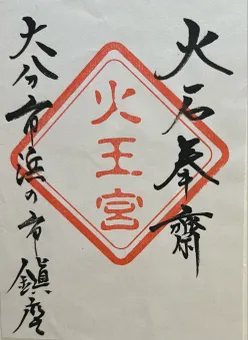 火石奉齋
火王宮
大分市浜の市鎭座